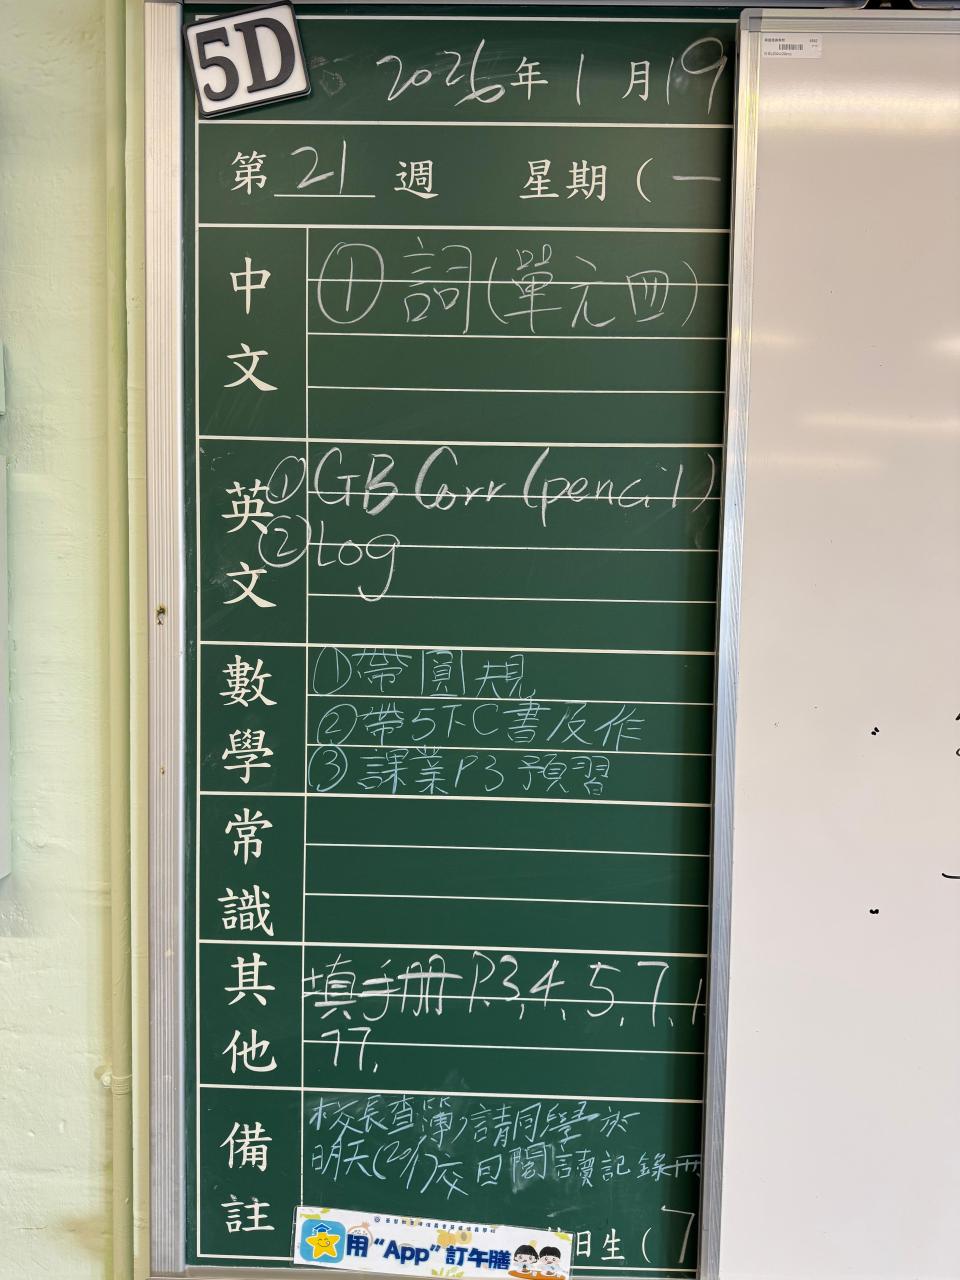 5D
2026年1月19
第21週 星期(一
中文
①詞(單元四)
英文
①GB Corr (pencil)
②log
數學
①帶圓規
②帶5下C書及作
③課業P3預習
常識
其他
填手冊P.3,4、5、7、1
77,
備註
校長查簿,請同學於
明天(20/1)交日閱讀記錄冊
用“App”訂午膳
生(7